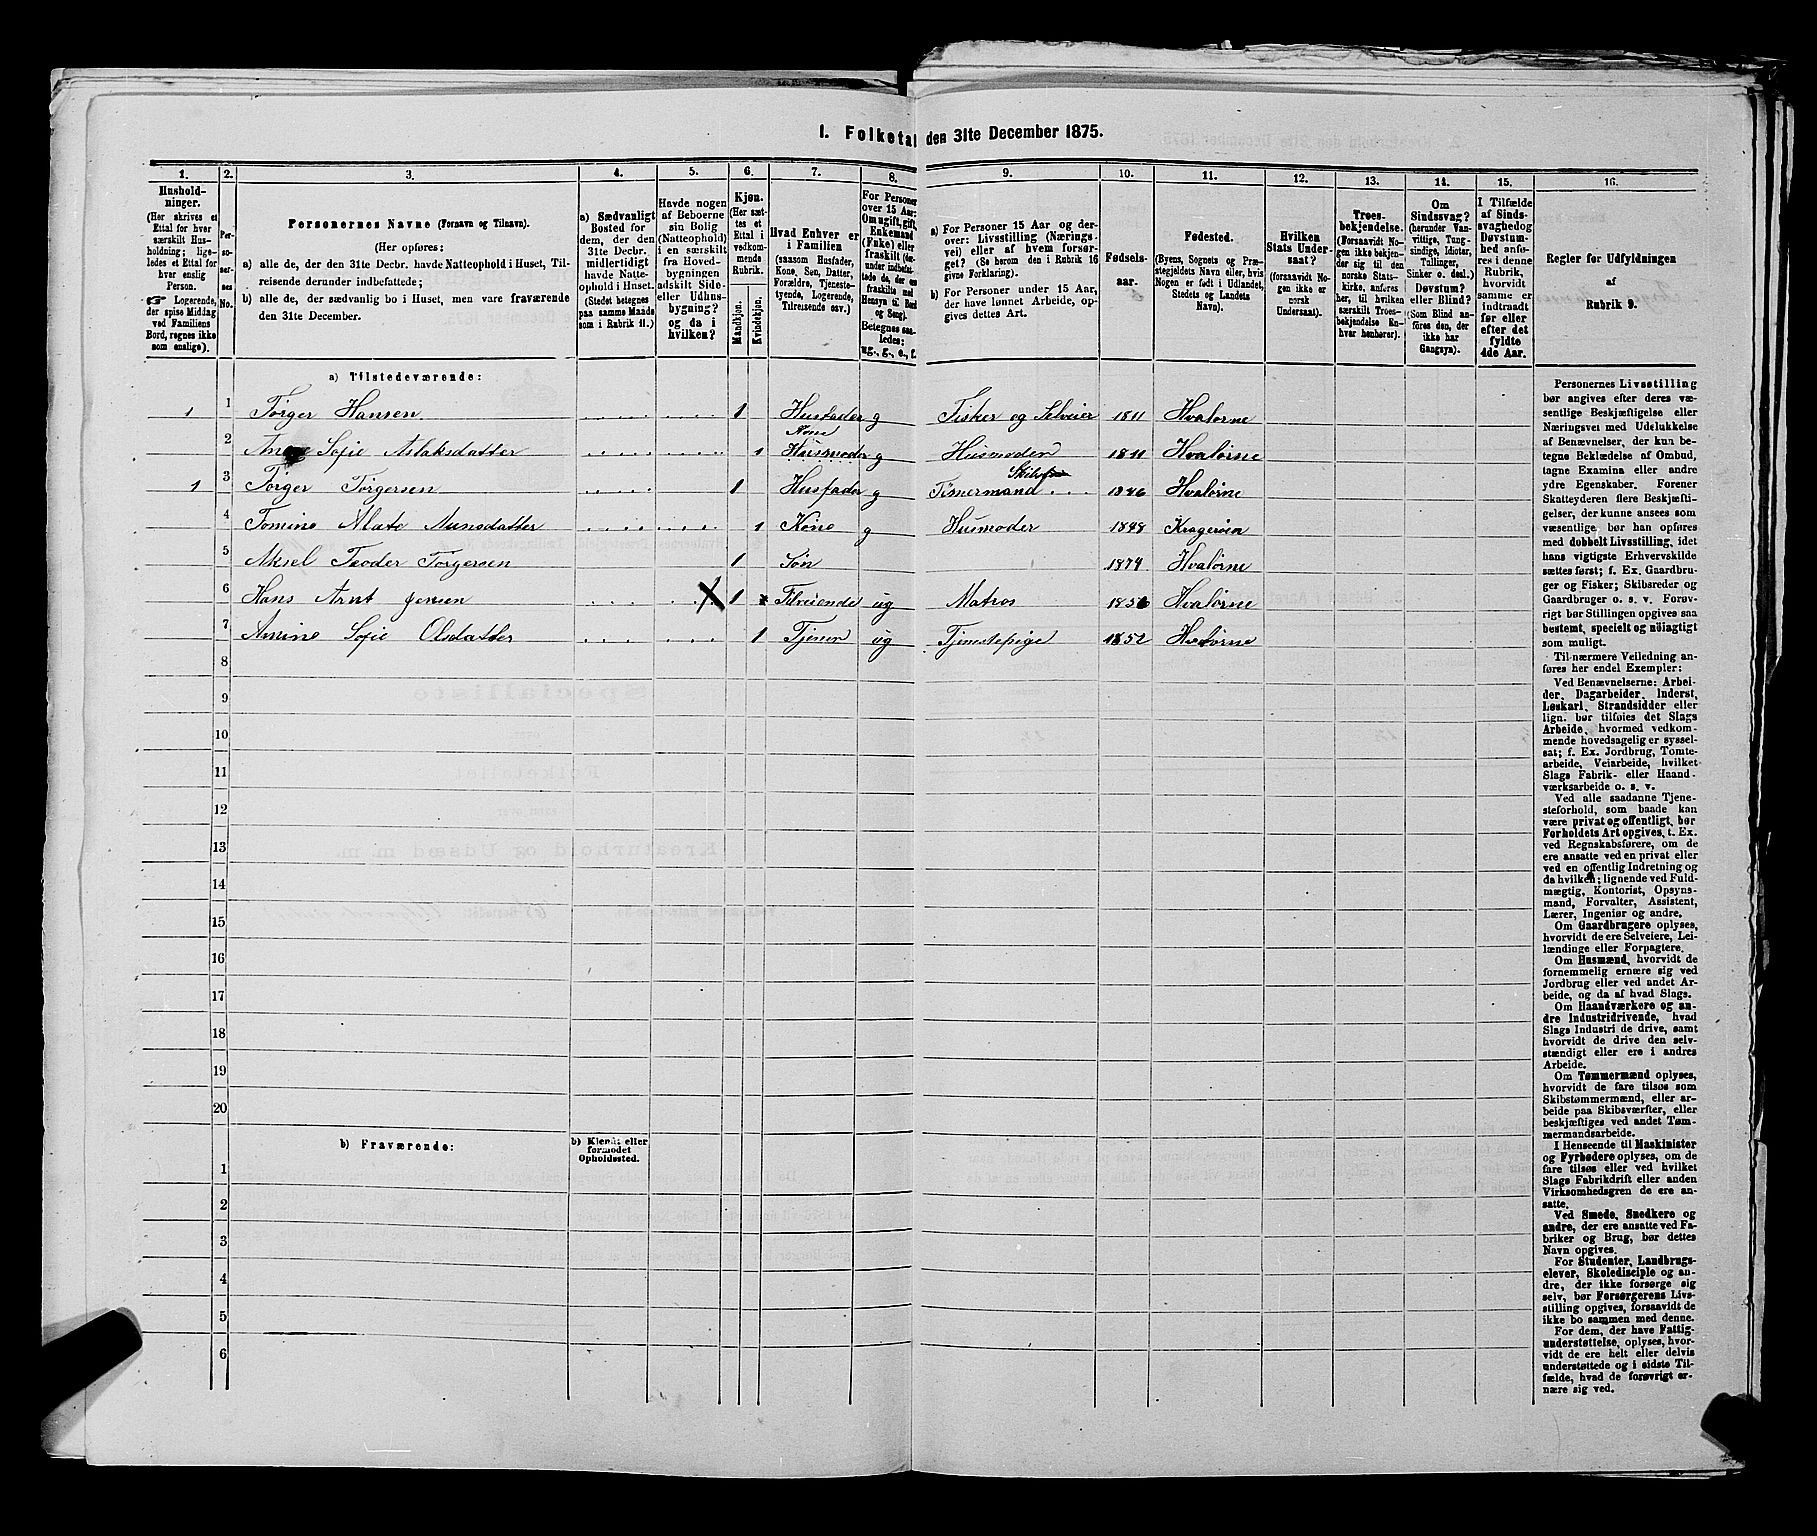 1. Folketal den 31te December 1875.
1. 2. 3. 4. 5. 6. 7. 8. 9. 10. 11. 12. 13. 14. 15. 16.
Hushold-
ninger.
(Her skrives et
Ettal for hver
særskilt Hus-
holdning; lige-
ledes et Ettal for
hver enslig
Person.
☞ Logerende,
der spise Middag
ved Familiens
Bord, regnes ikke
som enslige).
Per-
so-
ner-
nes
No.
Personernes Navne (Fornavn og Tilnavn).
(Her opføres:
a) alle de, der den 31te Decbr. havde Natteophold i Huset, Til-
reisende derunder indbefattede;
b) alle de, der sædvanlig bo i Huset, men vare fraværende
den 31te December.
a) Sædvanligt
Bosted for
dem, der den
31te Decbr.
midlertidigt
havde Natte-
ophold i Huset.
(Stedet betegnes
paa samme Maade
som i Rubrik 11.)
Havde nogen
af Beboerne
sin Bolig
(Natteophold)
i en særskilt
fra Hoved-
bygningen
adskilt Side-
eller Udhus-
bygning?
og da i
hvilken?
Kjøn.
(Her sæt-
tes et
Ettal i
vedkom-
mende
Rubrik.
Mandkjøn.
Kvindekjøn.
Hvad Enhver er
i Familien
(saasom Husfader,
Kone, Søn, Datter,
Forældre, Tjeneste-
tyende, Logerende,
Tilreisende osv.)
For Personer
over 15 Aar:
Om ugift, gift,
Enkemand
(Enke) eller
fraskilt (der-
under indbefat-
tede de, der ere
fraskilte med
Hensyn til Bord
og Seng).
Betegnes saa-
ledes:
ug., g., e., f.
a) For Personer 15 Aar og der-
over: Livsstilling (Nærings-
vei) eller af hvem forsør-
get? (Se herom den i Rubrik 16
givne Forklaring).
b) For Personer under 15 Aar,
der have lønnet Arbeide, op-
gives dettes Art.
Fødsels-
aar.
Fødested.
(Byens, Sognets og Præ-
stegjeldets Navn eller, hvis
Nogen er født i Udlandet,
Stedets og Landets
Navn).
Hvilken
Stats Under-
saat?
(forsaavidt No-
gen ikke er
norsk
Undersaat).
Troes-
bekjendelse.
(Forsaavidt No-
gen ikke bekjen-
der sig til den
norske Stats-
kirke, anføres
her, til hvilken
særskilt Troes-
bekjendelse En-
hver henhører).
Om
Sindssvag?
(herunder Van-
vittige, Tung-
sindige, Idioter,
Tullinger,
Sinker o. desl.)
Døvstum?
eller Blind?
(Som Blind an-
føres den, der
ikke har
Gangsyn).
I Tilfælde
af Sinds-
svaghed og
Døvstum-
hed anfø-
res i denne
Rubrik,
hvorvidt
samme er
indtraadt
før eller
efter det
fyldte
4de Aar.
Regler før Udfyldningen
af
Rubrik 9.
a) Tilstedeværende:
1 1 Torger Hansen 1 Husfader g Fisker og Selveier 1811 Hvalørne
Kone
2 Anne Sofie Aslaksdatter 1 Husmoder g Husmoder 1811 Hvalørne
Skibs
1 3 Torger Torgersen 1 Husfader g Tømermand 1846 Hvalørne
4 Tomine Alate Aunsdatter 1 Kone g Husmoder 1848 Kragerøen
5 Aksel Teoder Torgersen 1 Søn 1874 Hvalørne
6 Hans Arnt Jensen 1 Tilreisende ug Matros 1856 Hvalørne
7 Amine Sofie Olsdatter 1 Tjener ug Tjenstepige 1852 Hvalørne
8
9
10
11
12
13
14
15
16
17
18
19
20
b) Fraværende:
b) Kjendt eller
formodet
Opholdssted.
1
2
3
4
5
6
Personernes Livsstilling
bør angives efter deres væ-
sentlige Beskjæftigelse eller
Næringsvei med Udelukkelse
af Benævnelser, der kun be-
tegne Beklædelse af Ombud,
tagne Examina eller andre
ydre Egenskaber. Forener
Skatteyderen flere Beskjæfti-
gelser, der kunne ansees som
væsentlige, bør han opføres
med dobbelt Livsstilling, idet
hans vigtigste Erhvervskilde
sættes først; f. Ex. Gaardbru-
ger og Fisker; Skibsreder og
Gaardbruger o. s. v. Forøv-
rigt bør Stillingen opgives saa
bestemt, specielt og nøiagtigt
som muligt.
Til nærmere Veiledning an-
føres her endel Exempler:
Ved Benævnelserne: Arbei-
der, Dagarbeider, Inderst,
Løskarl, Strandsidder eller
lign. bør tilføies det Slags
Arbeide, hvormed vedkom-
mende hovedsagelig er syssel-
sat; f. Ex. Jordbrug, Tomte-
arbeide, Veiarbeide, hvilket
Slags Fabrik- eller Haand-
værksarbeide o. s. v.
Ved alle saadanne Tjene-
steforhold, som baade kan
være privat og offentligt, bør
Forholdets Art opgives, t. Ex.
ved Regnskabsførere, om de
ere ansatte ved en privat eller
ved en offentlig Indretning og
da hvilken; lignende ved Fuld-
mægtig, Kontorist, Opsyns-
mand, Forvalter, Assistent,
Lærer, Ingeniør og andre.
Om Gaardbrugere oplyses,
hvorvidt de ere Selveiere, Lei-
lændinge eller Forpagtere.
Om Husmænd, hvorvidt de
fornemmelig ernære sig ved
Jordbrug eller ved andet Ar-
beide, og da af hvad Slags.
Om Haandværkere og an-
dre Industridrivende, hvad
Slags Industri de drive, samt
hvorvidt de drive den selv-
stændigt eller ere i andres
Arbeide.
Om Tømmermænd oplyses,
hvorvidt de fare tilsøs som
Skibstømmermænd, eller ar-
beide paa Skibsværfter, eller
beskjæftiges ved andet Tøm-
mermandsarbeide.
I Henseende til Maskinister
og Fyrbødere oplyses, om de
fare tilsøs eller ved hvilket
Slags Fabrikdrift eller anden
Virksomhedsgren de ere an-
satte.
Ved Smede, Snedkere og
andre, der ere ansatte ved Fa-
briker og Brug, bør dettes
Navn opgives.
For Studenter, Landbrugs-
elever, Skoledisciple og an-
dre, der ikke forsørge sig
selv, bør Forsørgerens Livs-
stilling opgives, forsaavidt de
ikke bo sammen med denne.
For dem, der have Fattig-
understøttelse, oplyses, hvor-
vidt de ere helt eller delvis
understøttede og i sidste Til-
fælde, hvad de forøvrigt er-
nære sig ved.